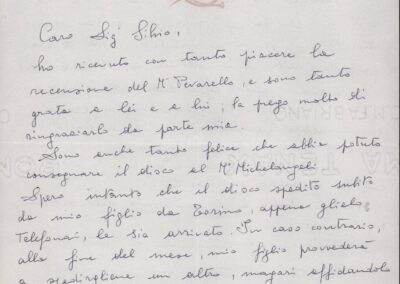 Caro Sig Silvio,
ho ricevuto con tanto piacere la
recensione del M° Pevarello, e sono tanto
grata a lei e a lui; la prego molto di
ringraziarlo da parte mia.
Sono anche tanto felice che abbia potuto
consegnare il disco al M° Michelangeli.
Spero intanto che il disco spedito subito
da mio figlio da Torino, appena glielo
telefonai, le sia arrivato. In caso contrario,
alla fine del mese, mio figlio provvederà
a spedirgliene un altro, magari affidandolo